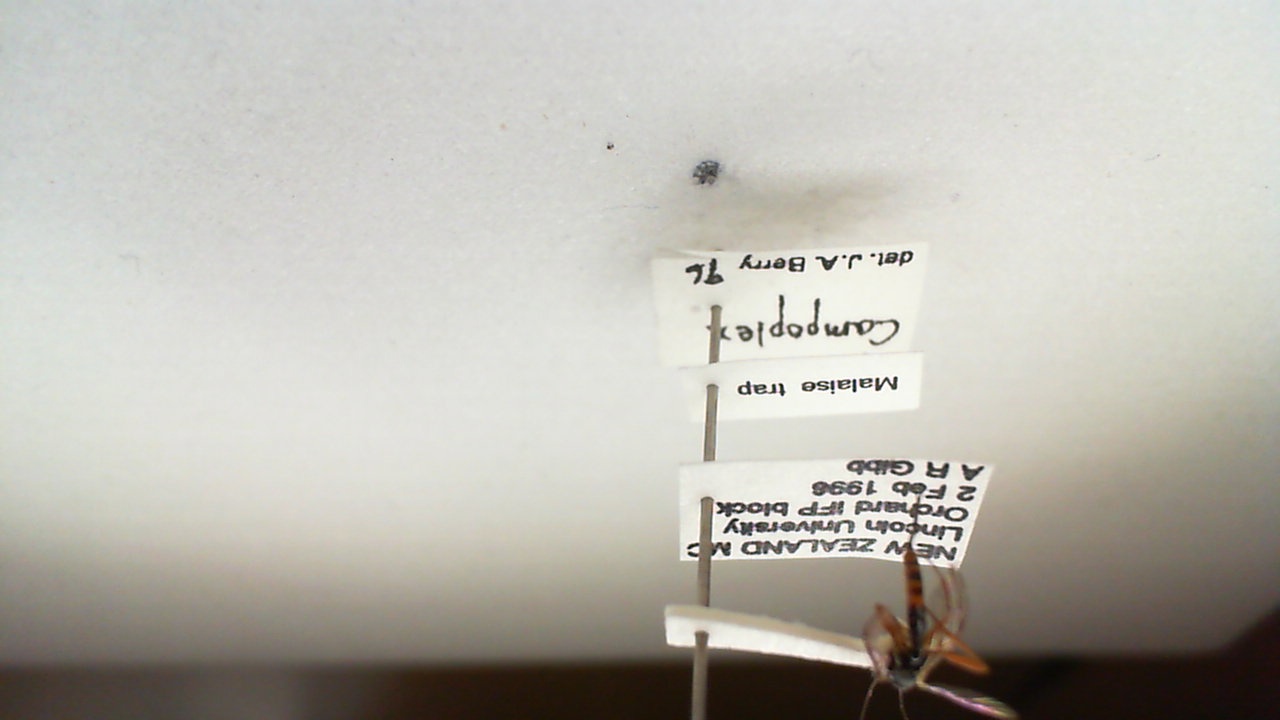 NEW ZEALAND MC
Lincoln University
Orchard IFP block
2 Feb 1996
A R Gibb
Malaise trap
Campoplex
det. J.A. Berry 96